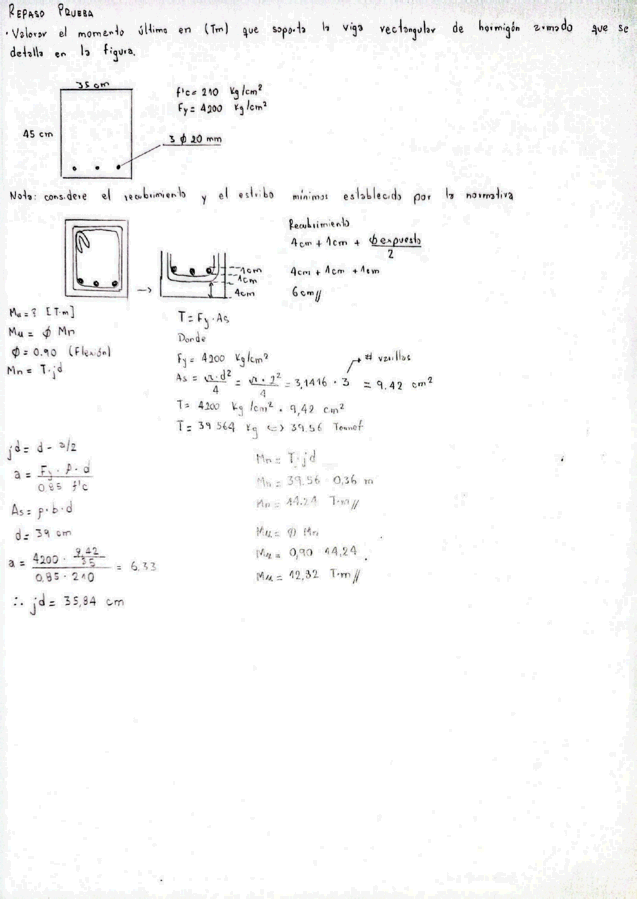 REPASO PRUEBA
· Valorar el momento último en (Tm) que soporta la viga rectangular de hormigón armado que se
detalla en la figura.
35 cm
f'c = 210 Kg/cm²
Fy = 4200 Kg/cm²
45 cm
3 ϕ 20 mm
Nota: considere el recubrimiento y el estribo mínimos establecido por la normativa
Recubrimiento
4cm + 1cm + ϕ expuesto / 2
1cm
1cm
4cm
4cm + 1cm + 1cm
6cm //
Mu = ? [T·m]
Mu = ϕ Mn
ϕ = 0.90 (Flexión)
Mn = T·jd
T = Fy · As
Donde
Fy = 4200 Kg/cm²
# varillas
As = π·d²/4 = π·2²/4 = 3,1416 · 3 = 9.42 cm²
T = 4200 Kg/cm² · 9,42 cm²
T = 39 564 Kg <=> 39.56 Tonnef
jd = d - a/2
a = Fy · ρ · d / 0.85 f'c
As = ρ · b · d
d = 39 cm
a = 4200 · 9.42/35 / 0.85 · 210 = 6.33
∴ jd = 35,84 cm
Mn = T·jd
Mn = 39.56 · 0,36 m
Mn = 14.24 T·m //
Mu = ϕ Mn
Mu = 0,90 · 14,24
Mu = 12,82 T·m //